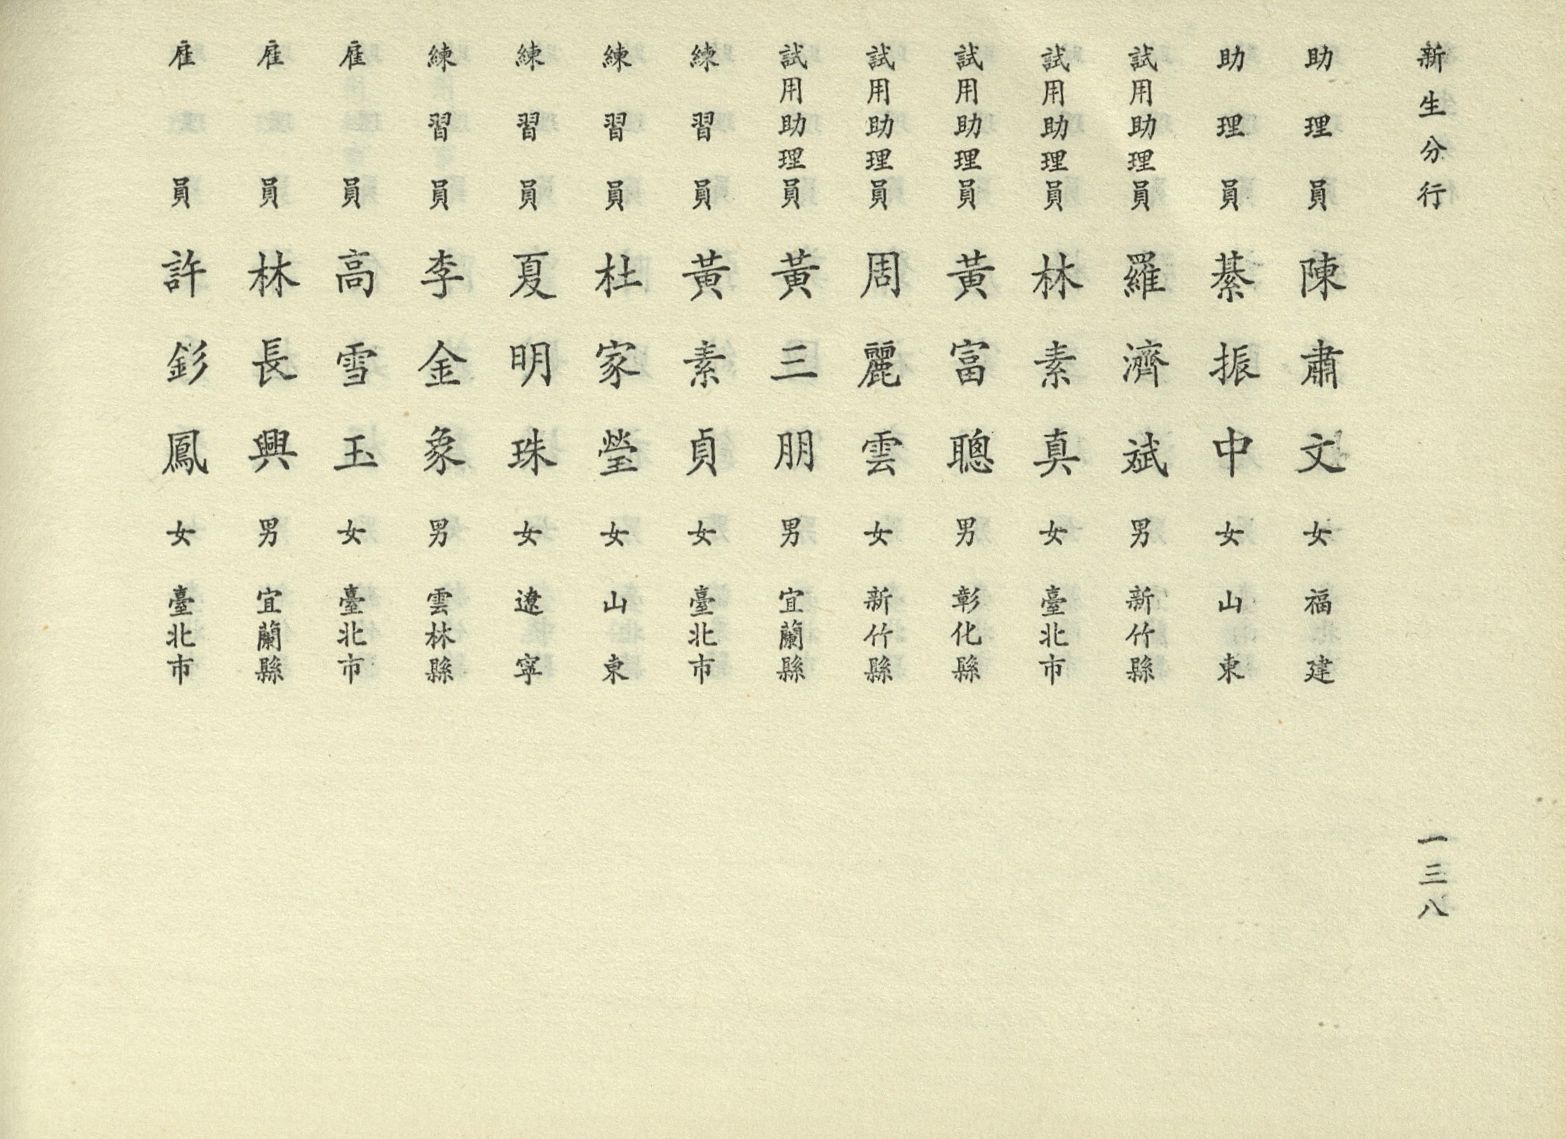 新生分行
一三八
助理員 陳肅文 女 福建
助理員 綦振中 女 山東
試用助理員 羅濟斌 男 新竹縣
試用助理員 林素真 女 臺北市
試用助理員 黃富聰 男 彰化縣
試用助理員 周麗雲 女 新竹縣
試用助理員 黃三朋 男 宜蘭縣
練習員 黃素貞 女 臺北市
練習員 杜家瑩 女 山東
練習員 夏明珠 女 遼寧
練習員 李金象 男 雲林縣
雇員 高雪玉 女 臺北市
雇員 林長興 男 宜蘭縣
雇員 許釤鳳 女 臺北市